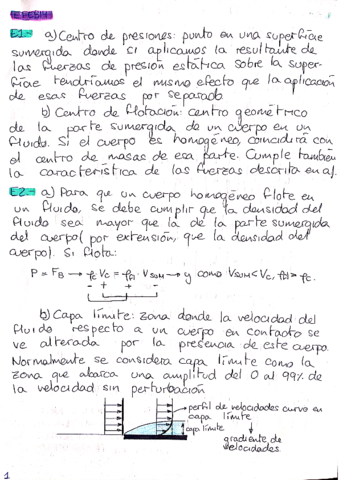 E1.- a) Centro de presiones: punto en una superficie
sumergida donde si aplicamos la resultante de
las fuerzas de presión estática sobre la super-
ficie tendríamos el mismo efecto que la aplicación
de esas fuerzas por separado
b) Centro de flotación: centro geométrico
de la parte sumergida de un cuerpo en un
fluido. Si el cuerpo es homogéneo, coincidirá con
el centro de masas de esa parte. Cumple también
la característica de las fuerzas descrita en a).
E2.- a) Para que un cuerpo homogéneo flote en
un fluido, se debe cumplir que la densidad del
fluido sea mayor que la de la parte sumergida
del cuerpo (por extensión, que la densidad del
cuerpo). Si flota:
P = FB → ρc Vc = ρfl · Vsum → y como Vsum < Vc, ρfl > ρc.
- + + -
b) Capa límite: zona donde la velocidad del
fluido respecto a un cuerpo en contacto se
ve alterada por la presencia de este cuerpo
Normalmente se considera capa límite como la
zona que abarca una amplitud del 0 al 99% de
la velocidad sin perturbación
perfil de velocidades curvo en
capa límite
capa límite
gradiente de
velocidades
1